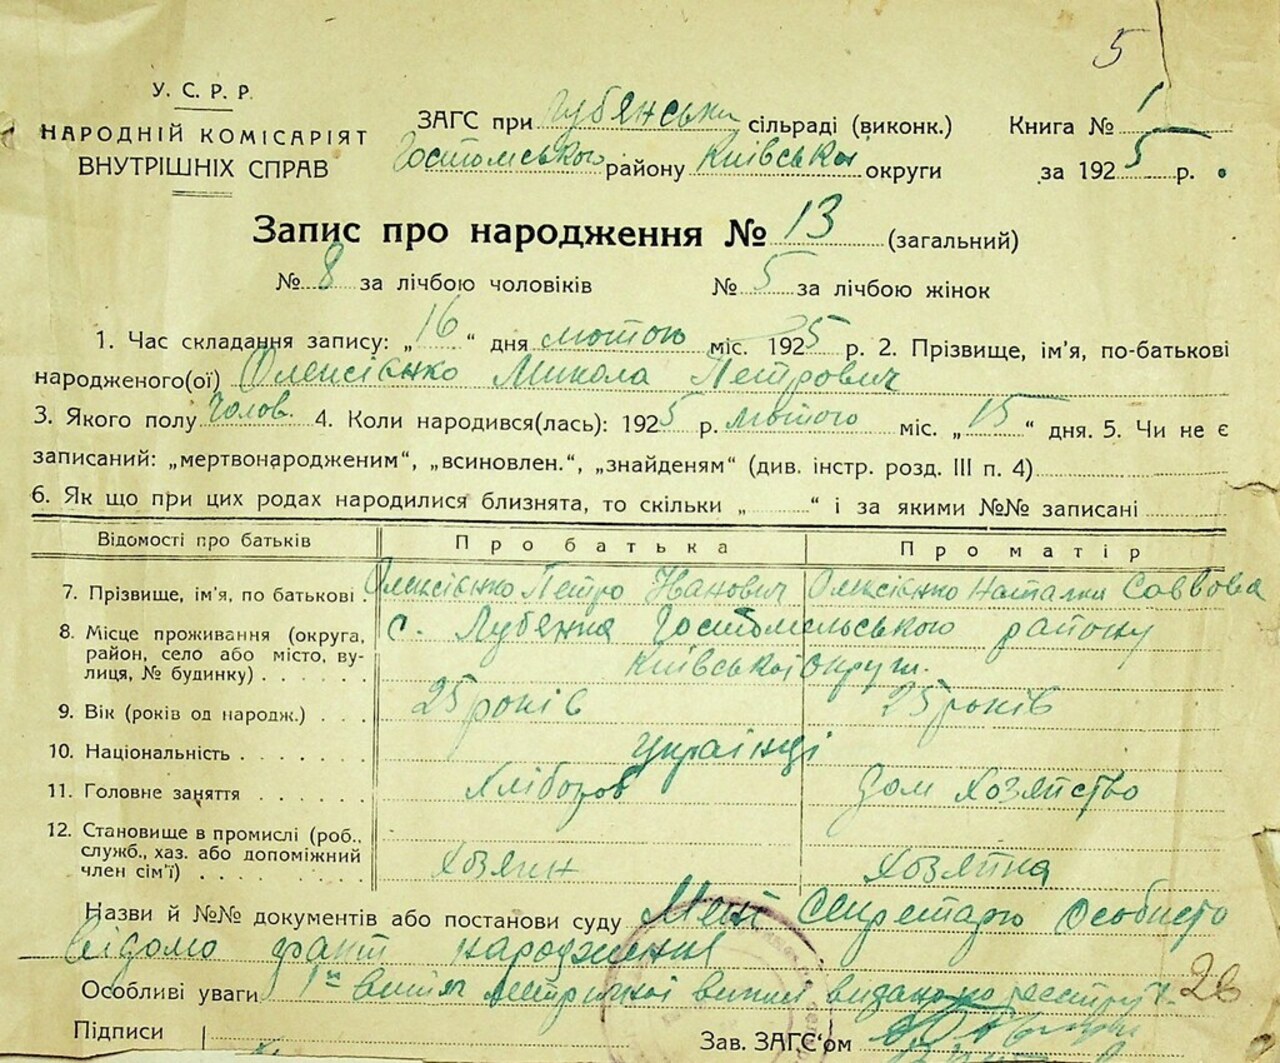 5
У. С. Р. Р.
НАРОДНІЙ КОМІСАРІЯТ
ВНУТРІШНІХ СПРАВ
ЗАГС при Лубянськи сільраді (виконк.) Книга № 1
Гостомського району Київської округи за 1925 р.
Запис про народження № 13 (загальний)
№ 8 за лічбою чоловіків № 5 за лічбою жінок
1. Час складання запису: „16“ дня лютого міс. 1925 р. 2. Прізвище, ім'я, по-батькові
народженого(ої) Олексієнко Микола Петрович
3. Якого полу Чолов. 4. Коли народився(лась): 1925 р. лютого міс. „15“ дня. 5. Чи не є
записаний: „мертвонародженим“, „всиновлен.“, „знайденям“ (див. інстр. розд. III п. 4)
6. Як що при цих родах народилися близнята, то скільки „ “ і за якими №№ записані
Відомості про батьків Про батька Про матір
7. Прізвище, ім'я, по батькові Олексієнко Петро Иванович Олексієнко Наталка Саввова
8. Місце проживання (округа, с. Лубянка Гостомельського району
район, село або місто, ву-
лиця, № будинку) Київської округи.
9. Вік (років од народж.) 25 років 25 років
10. Національність українці
11. Головне заняття Хлібороб Дом Хозяйство
12. Становище в промислі (роб.,
служб., хаз. або допоміжний
член сім'ї) Хозяин Хозяйка
Назви й №№ документів або постанови суду Мені Секретарю Особисто
відомо факт народження
Особливі уваги 1 витяг метричної виписи видано по реєстру 26
Підписи Зав. ЗАГС'ом